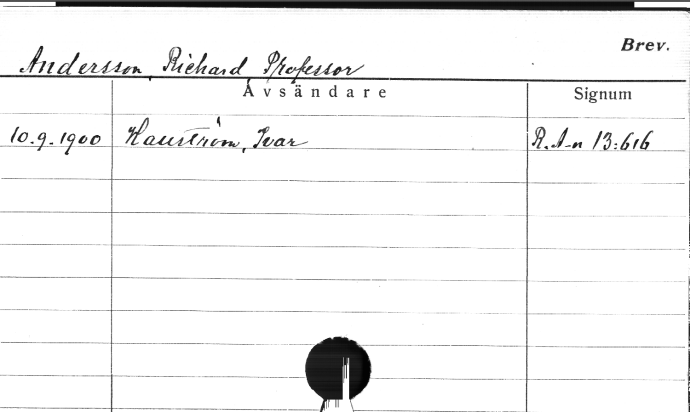 Brev.
Andersson, Richard, Professor
Avsändare Signum
10.9.1900 Hallström, Ivar R. A-n 13:616